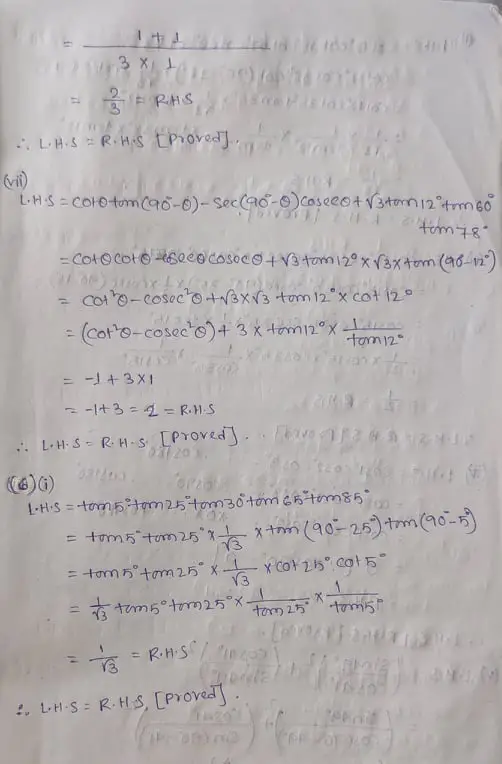 = (1 + 1)/(3 × 1)
= 2/3 = R.H.S
∴ L.H.S = R.H.S [Proved].
(vii)
L.H.S = cotθ tan(90°-θ) - sec(90°-θ) cosecθ + √3 tan12° tan60°
tan78°
= cotθ cotθ - cosecθ cosecθ + √3 tan12° × √3 × tan(90°-12°)
= cot²θ - cosec²θ + √3 × √3 tan12° × cot12°
= (cot²θ - cosec²θ) + 3 × tan12° × 1/tan12°
= -1 + 3×1
= -1+3 = 2 = R.H.S
∴ L.H.S = R.H.S. [Proved].
(6)(i)
L.H.S = tan5° tan25° tan30° tan65° tan85°
= tan5° tan25° × 1/√3 × tan(90°-25°) tan(90°-5°)
= tan5° tan25° × 1/√3 × cot25° cot5°
= 1/√3 tan5° tan25° × 1/tan25° × 1/tan5°
= 1/√3 = R.H.S
∴ L.H.S = R.H.S. [Proved].